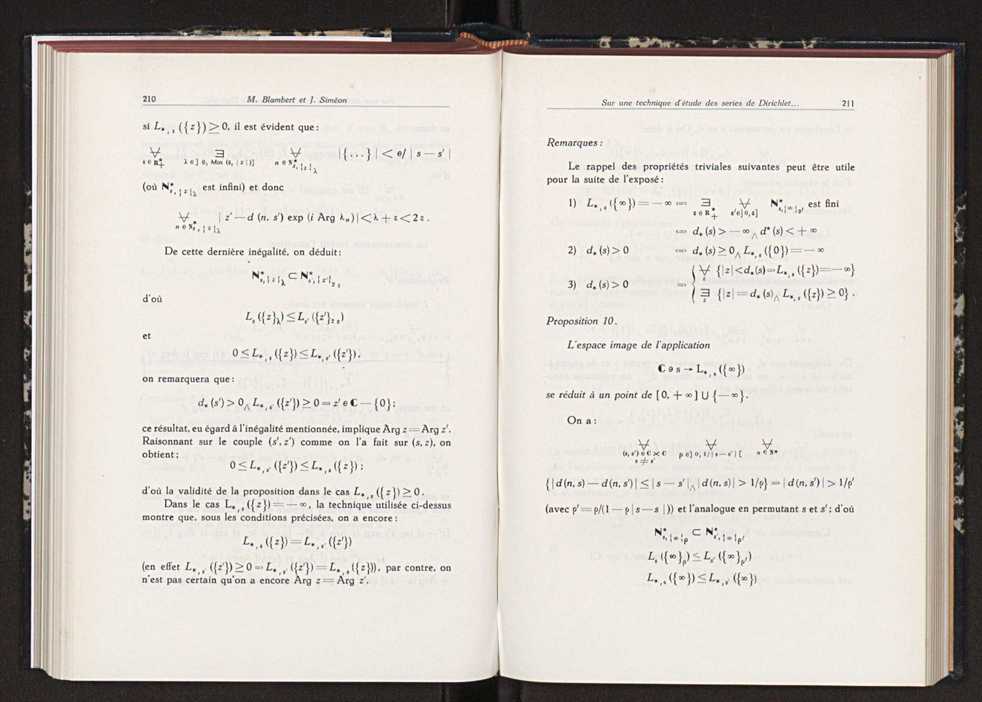 210 M. Blambert et J. Siméon
si L*,s ({z}) ≥ 0, il est évident que:
∀ ∃ ∀ |{...}| < e/ | s — s' |
ε ∈ R*+ λ ∈ ] 0, Min (ε, | z |)] n ∈ N*s, {z}λ
(où N*s, {z}λ est infini) et donc
∀ | z' — d (n, s') exp (i Arg λn) | < λ + ε < 2ε.
n ∈ N*s, {z}λ
De cette dernière inégalité, on déduit:
N*s, {z}λ ⊂ N*s, {z'}2ε
d'où
Ls ({z}λ) ≤ Ls' ({z'}2ε)
et
0 ≤ L*,s ({z}) ≤ L*,s' ({z'}).
on remarquera que:
d* (s') > 0 ∧ L*,s' ({z'}) ≥ 0 ⇒ z' ∈ C — {0};
ce résultat, eu égard à l'inégalité mentionnée, implique Arg z = Arg z'.
Raisonnant sur le couple (s', z') comme on l'a fait sur (s, z), on
obtient:
0 ≤ L*,s' ({z'}) ≤ L*,s ({z});
d'où la validité de la proposition dans le cas L*,s ({z}) ≥ 0.
Dans le cas L*,s ({z}) = — ∞, la technique utilisée ci-dessus
montre que, sous les conditions précisées, on a encore:
L*,s ({z}) = L*,s' ({z'})
(en effet L*,s' ({z'}) ≥ 0 ⇒ L*,s' ({z'}) = L*,s ({z})), par contre, on
n'est pas certain qu'on a encore Arg z = Arg z'.
Sur une technique d'étude des series de Dirichlet... 211
Remarques:
Le rappel des propriétés triviales suivantes peut être utile
pour la suite de l'exposé:
1) L*,s ({∞}) = — ∞ ⇔ ∃ ∀ N*s,{∞}ε' est fini
ε ∈ R*+ ε' ∈ ] 0, ε]
⇔ d* (s) > — ∞ ∧ d* (s) < + ∞
2) d* (s) > 0 ⇔ d* (s) ≥ 0 ∧ L*,s ({0}) = — ∞
3) d* (s) > 0 ⇔ { ∀z {|z| < d* (s) ⇒ L*,s ({z}) = — ∞}
{ ∃z {|z| = d* (s) ∧ L*,s ({z}) ≥ 0}.
Proposition 10.
L'espace image de l'application
C ∋ s → L*,s ({∞})
se réduit à un point de [0, + ∞] ∪ {— ∞}.
On a:
∀ ∀ ∀
(s, s') ∈ C × C p ∈ ] 0, 1/| s — s' | [ n ∈ N*
s ≠ s'
{| d (n, s) — d (n, s') | ≤ | s — s' | ∧ | d (n, s) | > 1/p} ⇒ | d (n, s') | > 1/p'
(avec p' = p/(1 — p | s — s |)) et l'analogue en permutant s et s'; d'où
N*s, {∞}p ⊂ N*s', {∞}p'
Ls ({∞}p) ≤ Ls' ({∞}p')
L*,s ({∞}) ≤ L*,s' ({∞})